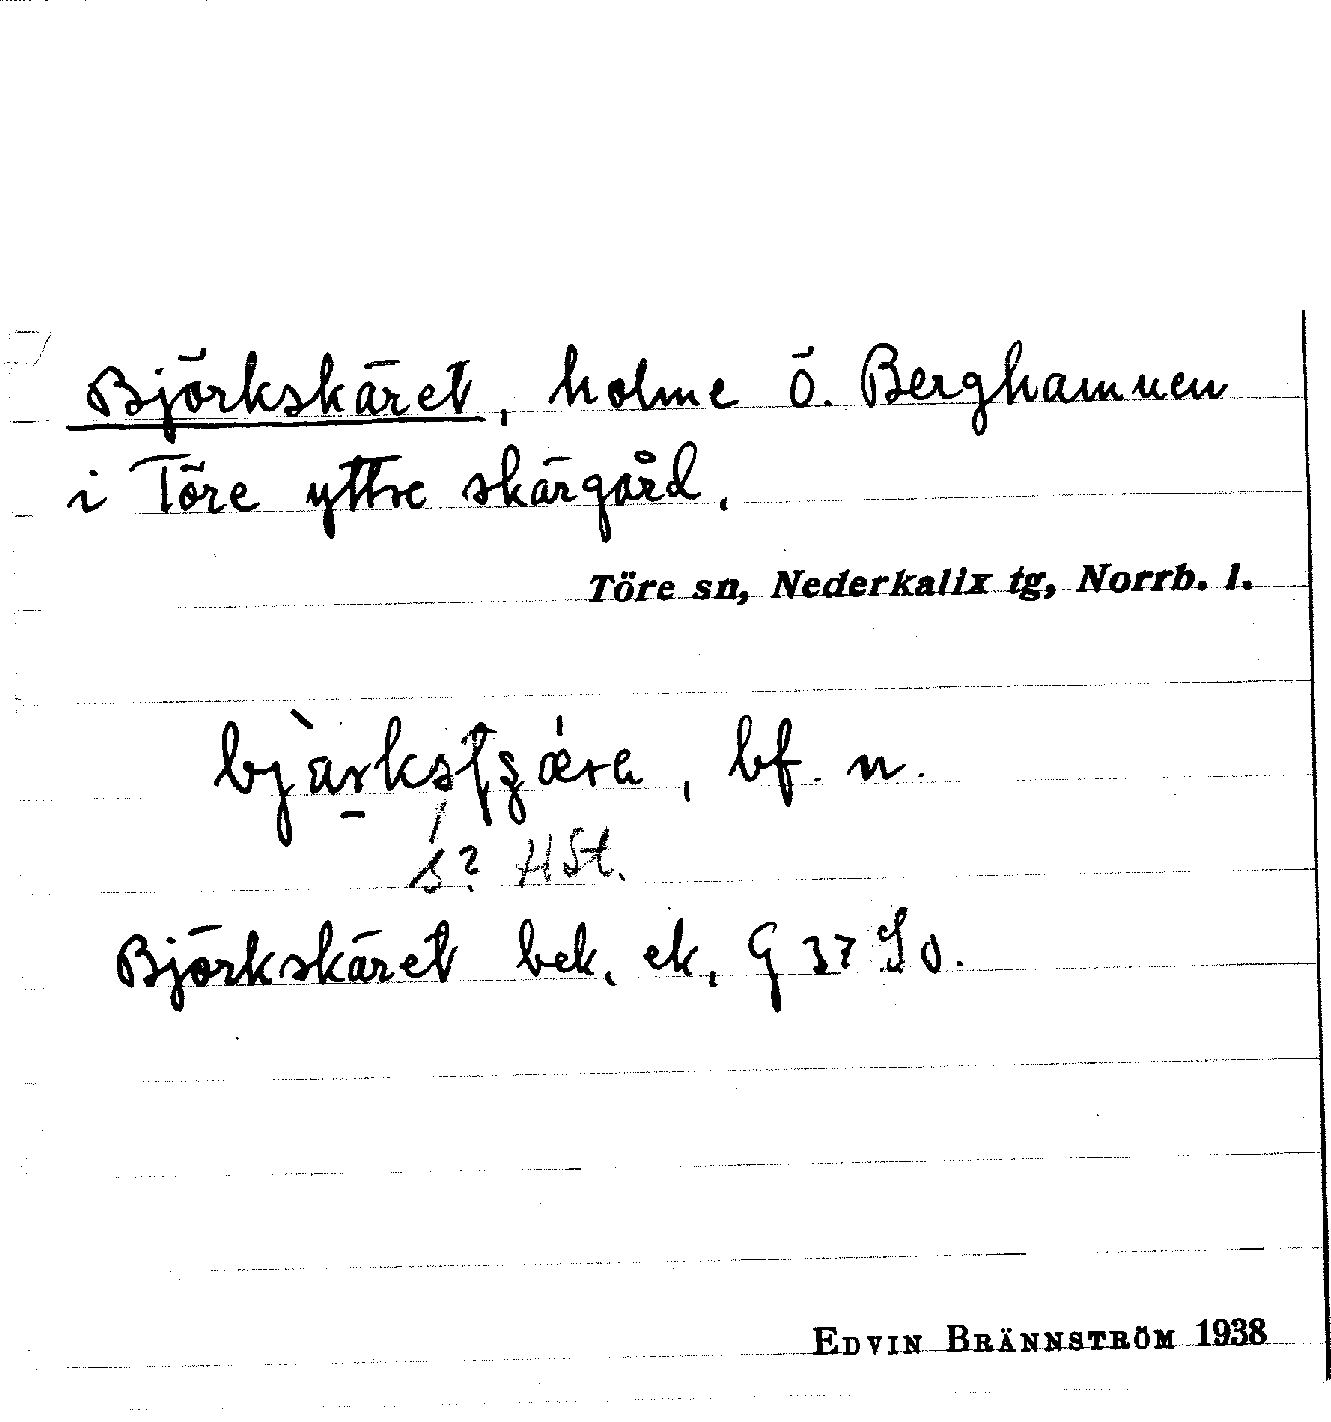 Björkskäret, holme ö. Berghamnen
i Töre yttre skärgård.
Töre sn, Nederkalix tg, Norrb. l.
bf. n.
s? HSt.
Björkskäret bek. ek. G 37 So.
EDVIN BRÄNNSTRÖM 1938